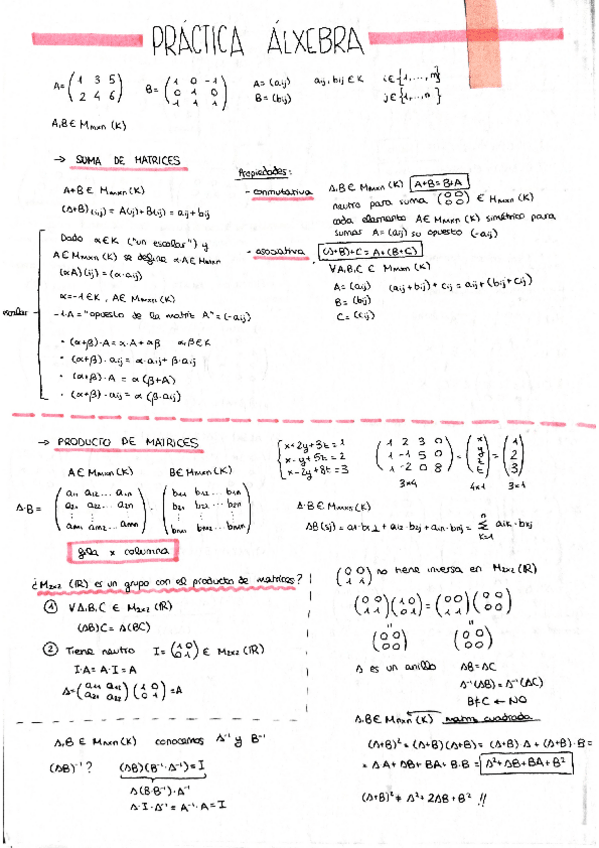 PRÁCTICA ÁLXEBRA
A= (1 3 5 / 2 4 6) B= (1 0 -1 / 0 1 0 / 1 1 1) A= (aij) aij, bij ∈ K i∈{1,...,m}
B= (bij) j∈{1,...,n}
A,B ∈ Mmxn (K)
→ SUMA DE MATRICES
A+B ∈ Mmxn (K)
(A+B)(ij) = A(ij)+B(ij) = aij+bij
Dado α∈K ("un escalar") y
A∈Mmxn (K) se define α·A∈Mmxn
(αA)(ij) = (α·aij)
α=-1∈K, A∈ Mmxn (K)
-1·A = "opuesto de la matriz A" = (-aij)
escalar
· (α+β)·A = α·A + αβ α,β∈K
· (α+β)·aij = α·aij + β·aij
· (α+β)·A = α(β+A)
· (α+β)·aij = α(β·aij)
Propiedades:
- conmutativa A,B ∈ Mmxn (K) A+B = B+A
neutro para suma (0 0 / 0 0) ∈ Mmxn (K)
cada elemento A∈ Mmxn (K) simétrico para
sumas A= (aij) su opuesto (-aij)
- asociativa (A+B)+C = A+(B+C)
∀A,B,C ∈ Mmxn (K)
A= (aij) (aij+bij)+cij = aij+(bij+cij)
B= (bij)
C= (cij)
→ PRODUCTO DE MATRICES
A∈ Mmxn (K) B∈ Mnxn (K)
A·B = (a11 a12 ... a1n / a21 a22 ... a2n / ⋮ / am1 am2 ... amn) · (b11 b12 ... b1n / b21 b22 ... b2n / ⋮ / bn1 bn2 ... bnn)
fila x columna
{x+2y+3t=1 / x-y+5t=2 / x-2y+8t=3 (1 2 3 0 / 1 -1 5 0 / 1 -2 0 8) · = (1 / 2 / 3)
3x4 4x1 3x1
AB = ∑ aik·bkj
k=1
¿M2x2 (IR) es un grupo con el producto de matrices?
① ∀A,B,C ∈ M2x2 (IR)
(AB)C = A(BC)
② Tiene neutro I= (1 0 / 0 1) ∈ M2x2 (IR)
I·A = A·I = A
A= (a11 a12 / a21 a22) (1 0 / 0 1) = A
(0 0 / 1 1) no tiene inversa en M2x2 (IR)
(0 0 / 1 1)(0 0 / 0 0) = (0 0 / 1 1)(0 0 / 0 0)
" "
(0 0 / 0 0) (0 0 / 0 0)
A es un anillo AB=AC
A⁻¹(AB) = A⁻¹(AC)
B≠C ← NO
A,B ∈ Mnxn (K) conocemos A⁻¹ y B⁻¹
(AB)⁻¹? (AB)(B⁻¹·A⁻¹) = I
A(B·B⁻¹)·A⁻¹
A·I·A⁻¹ = A⁻¹·A = I
A,B∈ Mnxn (K) matriz cuadrada
(A+B)² = (A+B)(A+B) = (A+B)·A + (A+B)·B =
= A·A + AB + BA + B·B = A²+AB+BA+B²
(A+B)² ≠ A²+2AB+B² !!